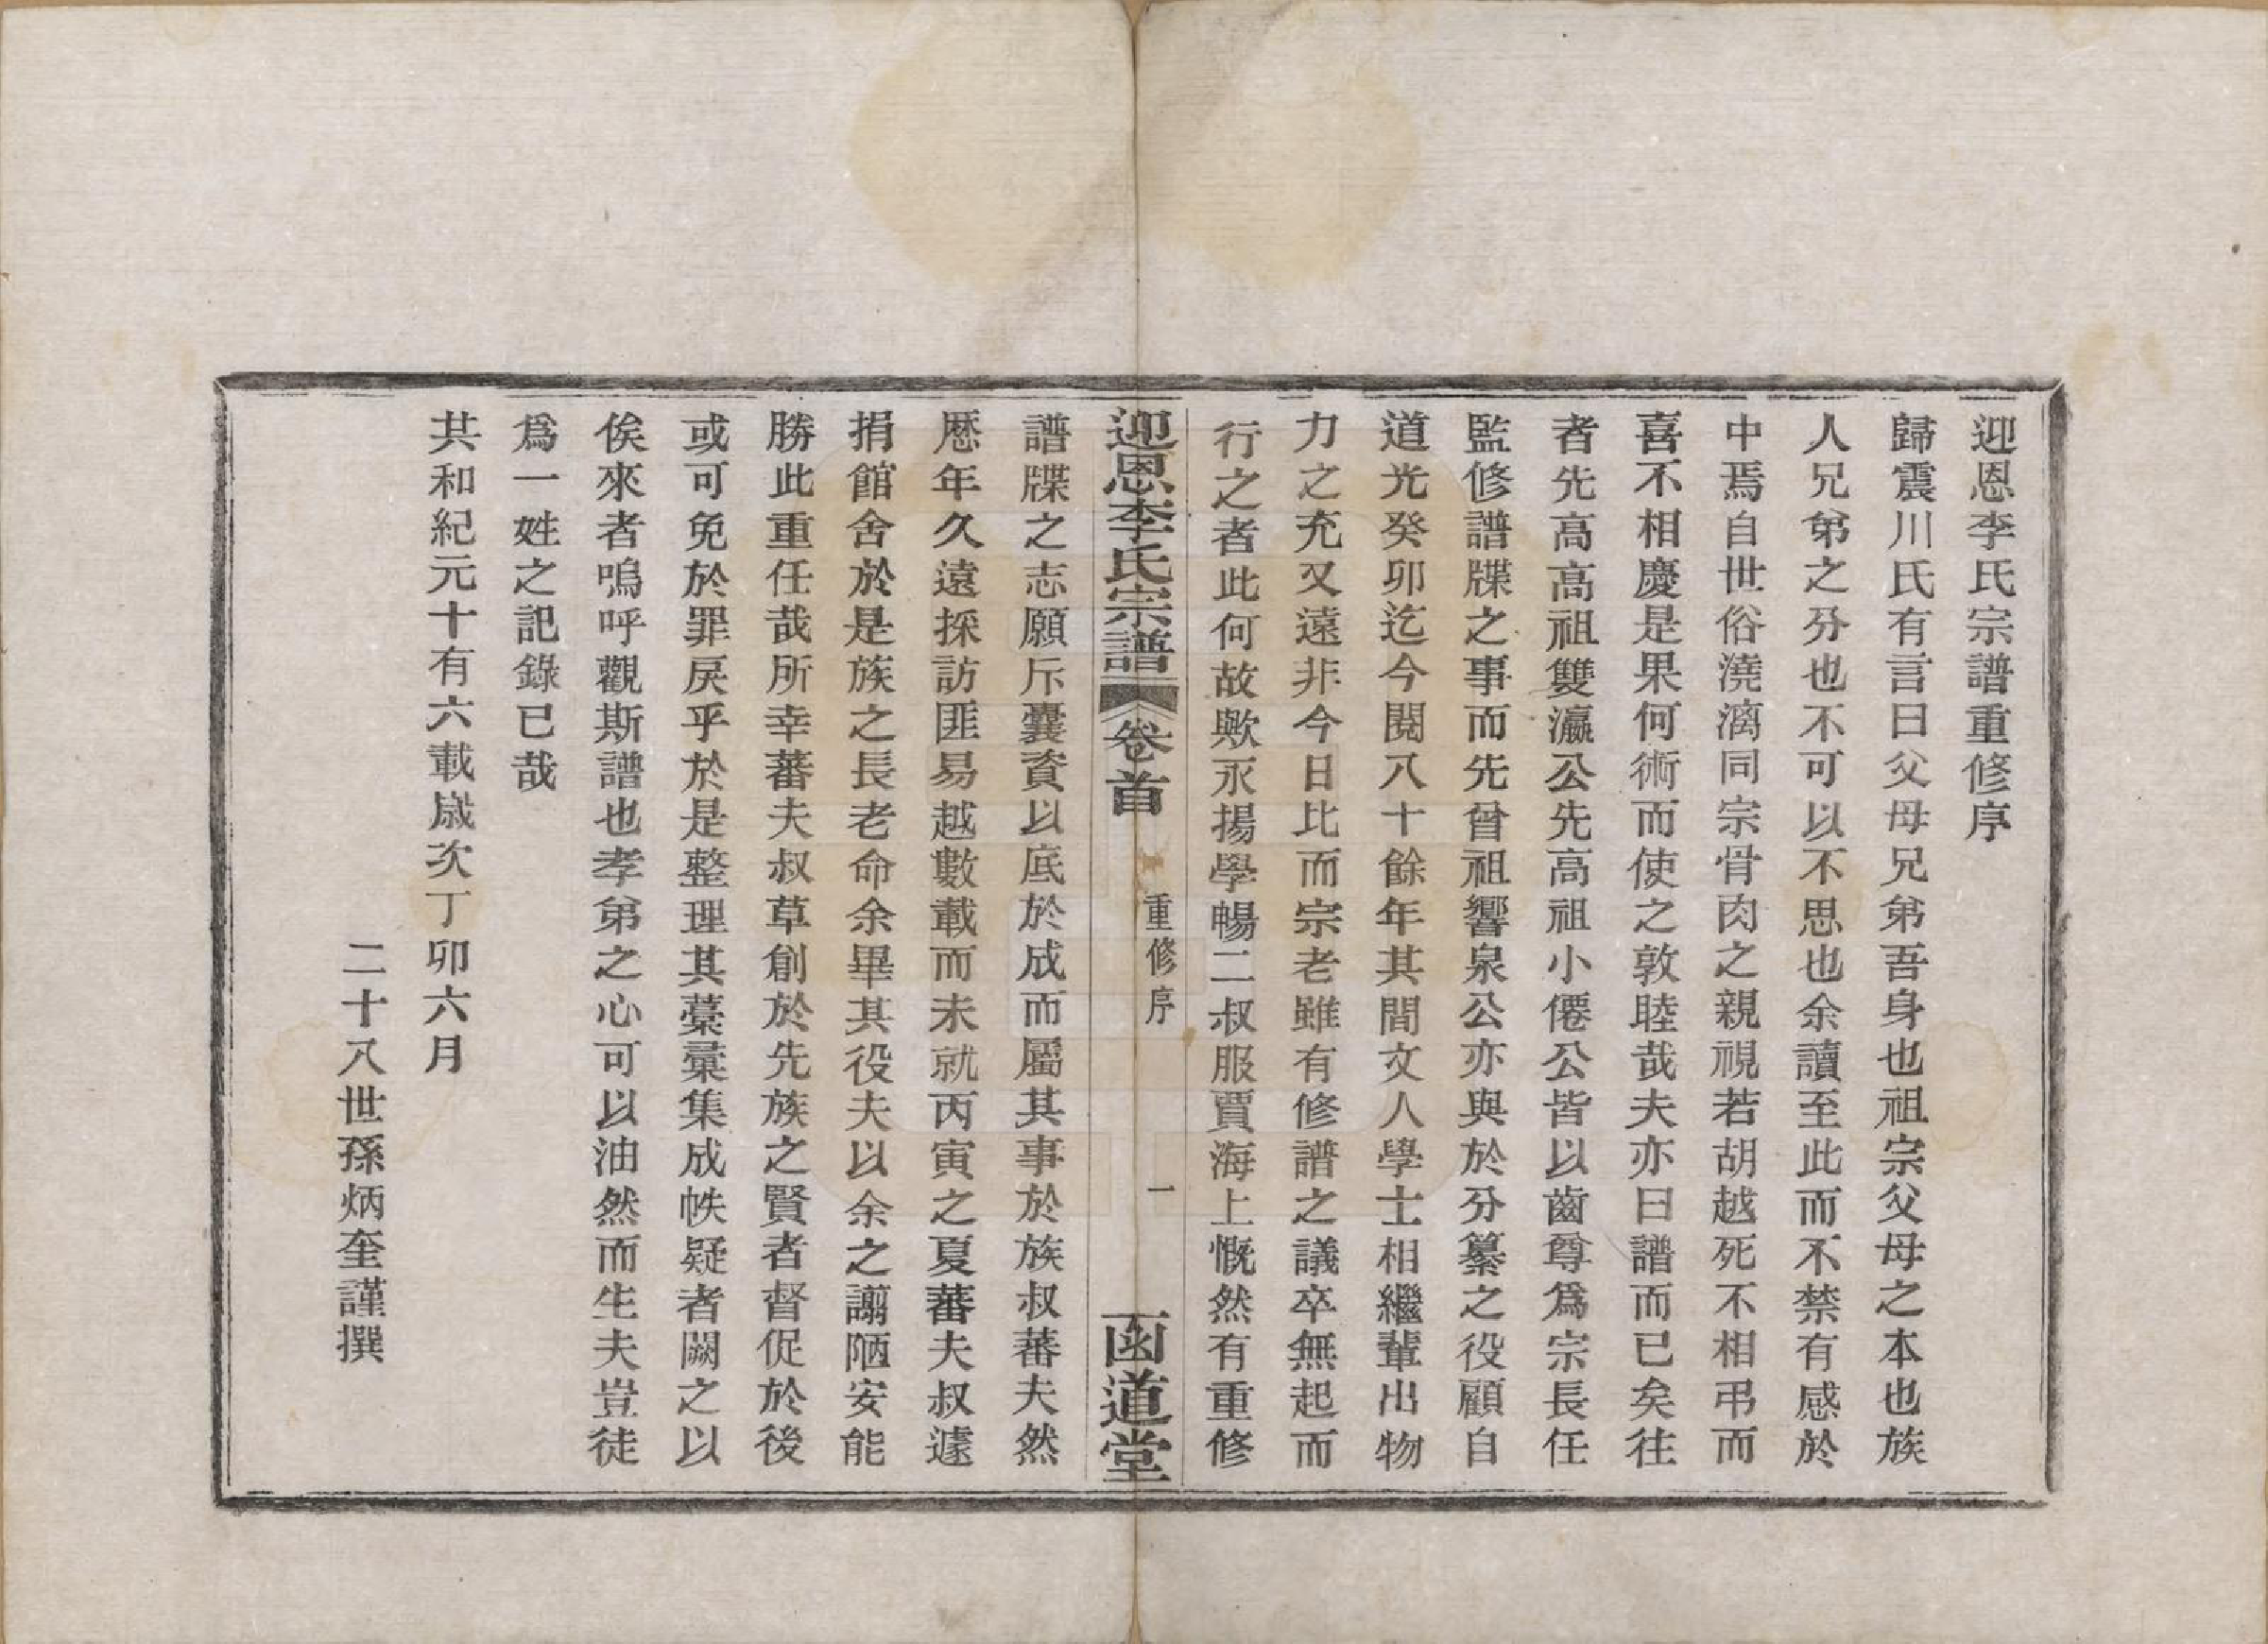 迎恩李氏宗譜重修序
歸震川氏有言曰父母兄弟吾身也祖宗父母之本也族
人兄弟之分也不可以不思也余讀至此而不禁有感於
中焉自世俗澆漓同宗骨肉之親視若胡越死不相弔而
喜不相慶是果何術而使之敦睦哉夫亦曰譜而已矣往
者先高高祖雙瀛公先高祖小僊公皆以齒尊爲宗長任
監修譜牒之事而先曾祖響泉公亦與於分纂之役顧自
道光癸卯迄今閱八十餘年其間文人學士相繼輩出物
力之充又遠非今日比而宗老雖有修譜之議卒無起而
行之者此何故歟永揚學暢二叔服賈海上慨然有重修
迎恩李氏宗譜 卷首 重修序 一 函道堂
譜牒之志願斥囊資以底於成而屬其事於族叔蕃夫然
歷年久遠採訪匪易越數載而未就丙寅之夏蕃夫叔遽
捐館舍於是族之長老命余畢其役夫以余之謭陋安能
勝此重任哉所幸蕃夫叔草創於先族之賢者督促於後
或可免於罪戾乎於是整理其藁彙集成帙疑者闕之以
俟來者嗚呼觀斯譜也孝弟之心可以油然而生夫豈徒
爲一姓之記錄已哉
共和紀元十有六載歲次丁卯六月
二十八世孫炳奎謹撰